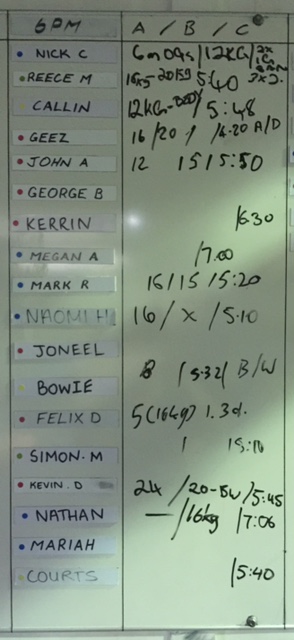 6PM A / B / C
NICK C 6m0Gs / 12KG /
REECE M 5:40 2x2
CALLIN 12KG- / 5:48
GEEZ 16 /20 / /6:20 A/D
JOHN A 12 15 / 5:50
GEORGE B
KERRIN /6:30
MEGAN A /7:00
MARK R 16 / 15 / 5:20
NAOMI H 16 / X / 5:10
JONEEL
BOWIE 8 / 5:32 / B/W
FELIX D 5(16kg) 1.3d.
SIMON. M /
KEVIN. D 24 / 20-BW / 5:45
NATHAN — / 16kg / 7:06
MARIAH
COURTS /5:40